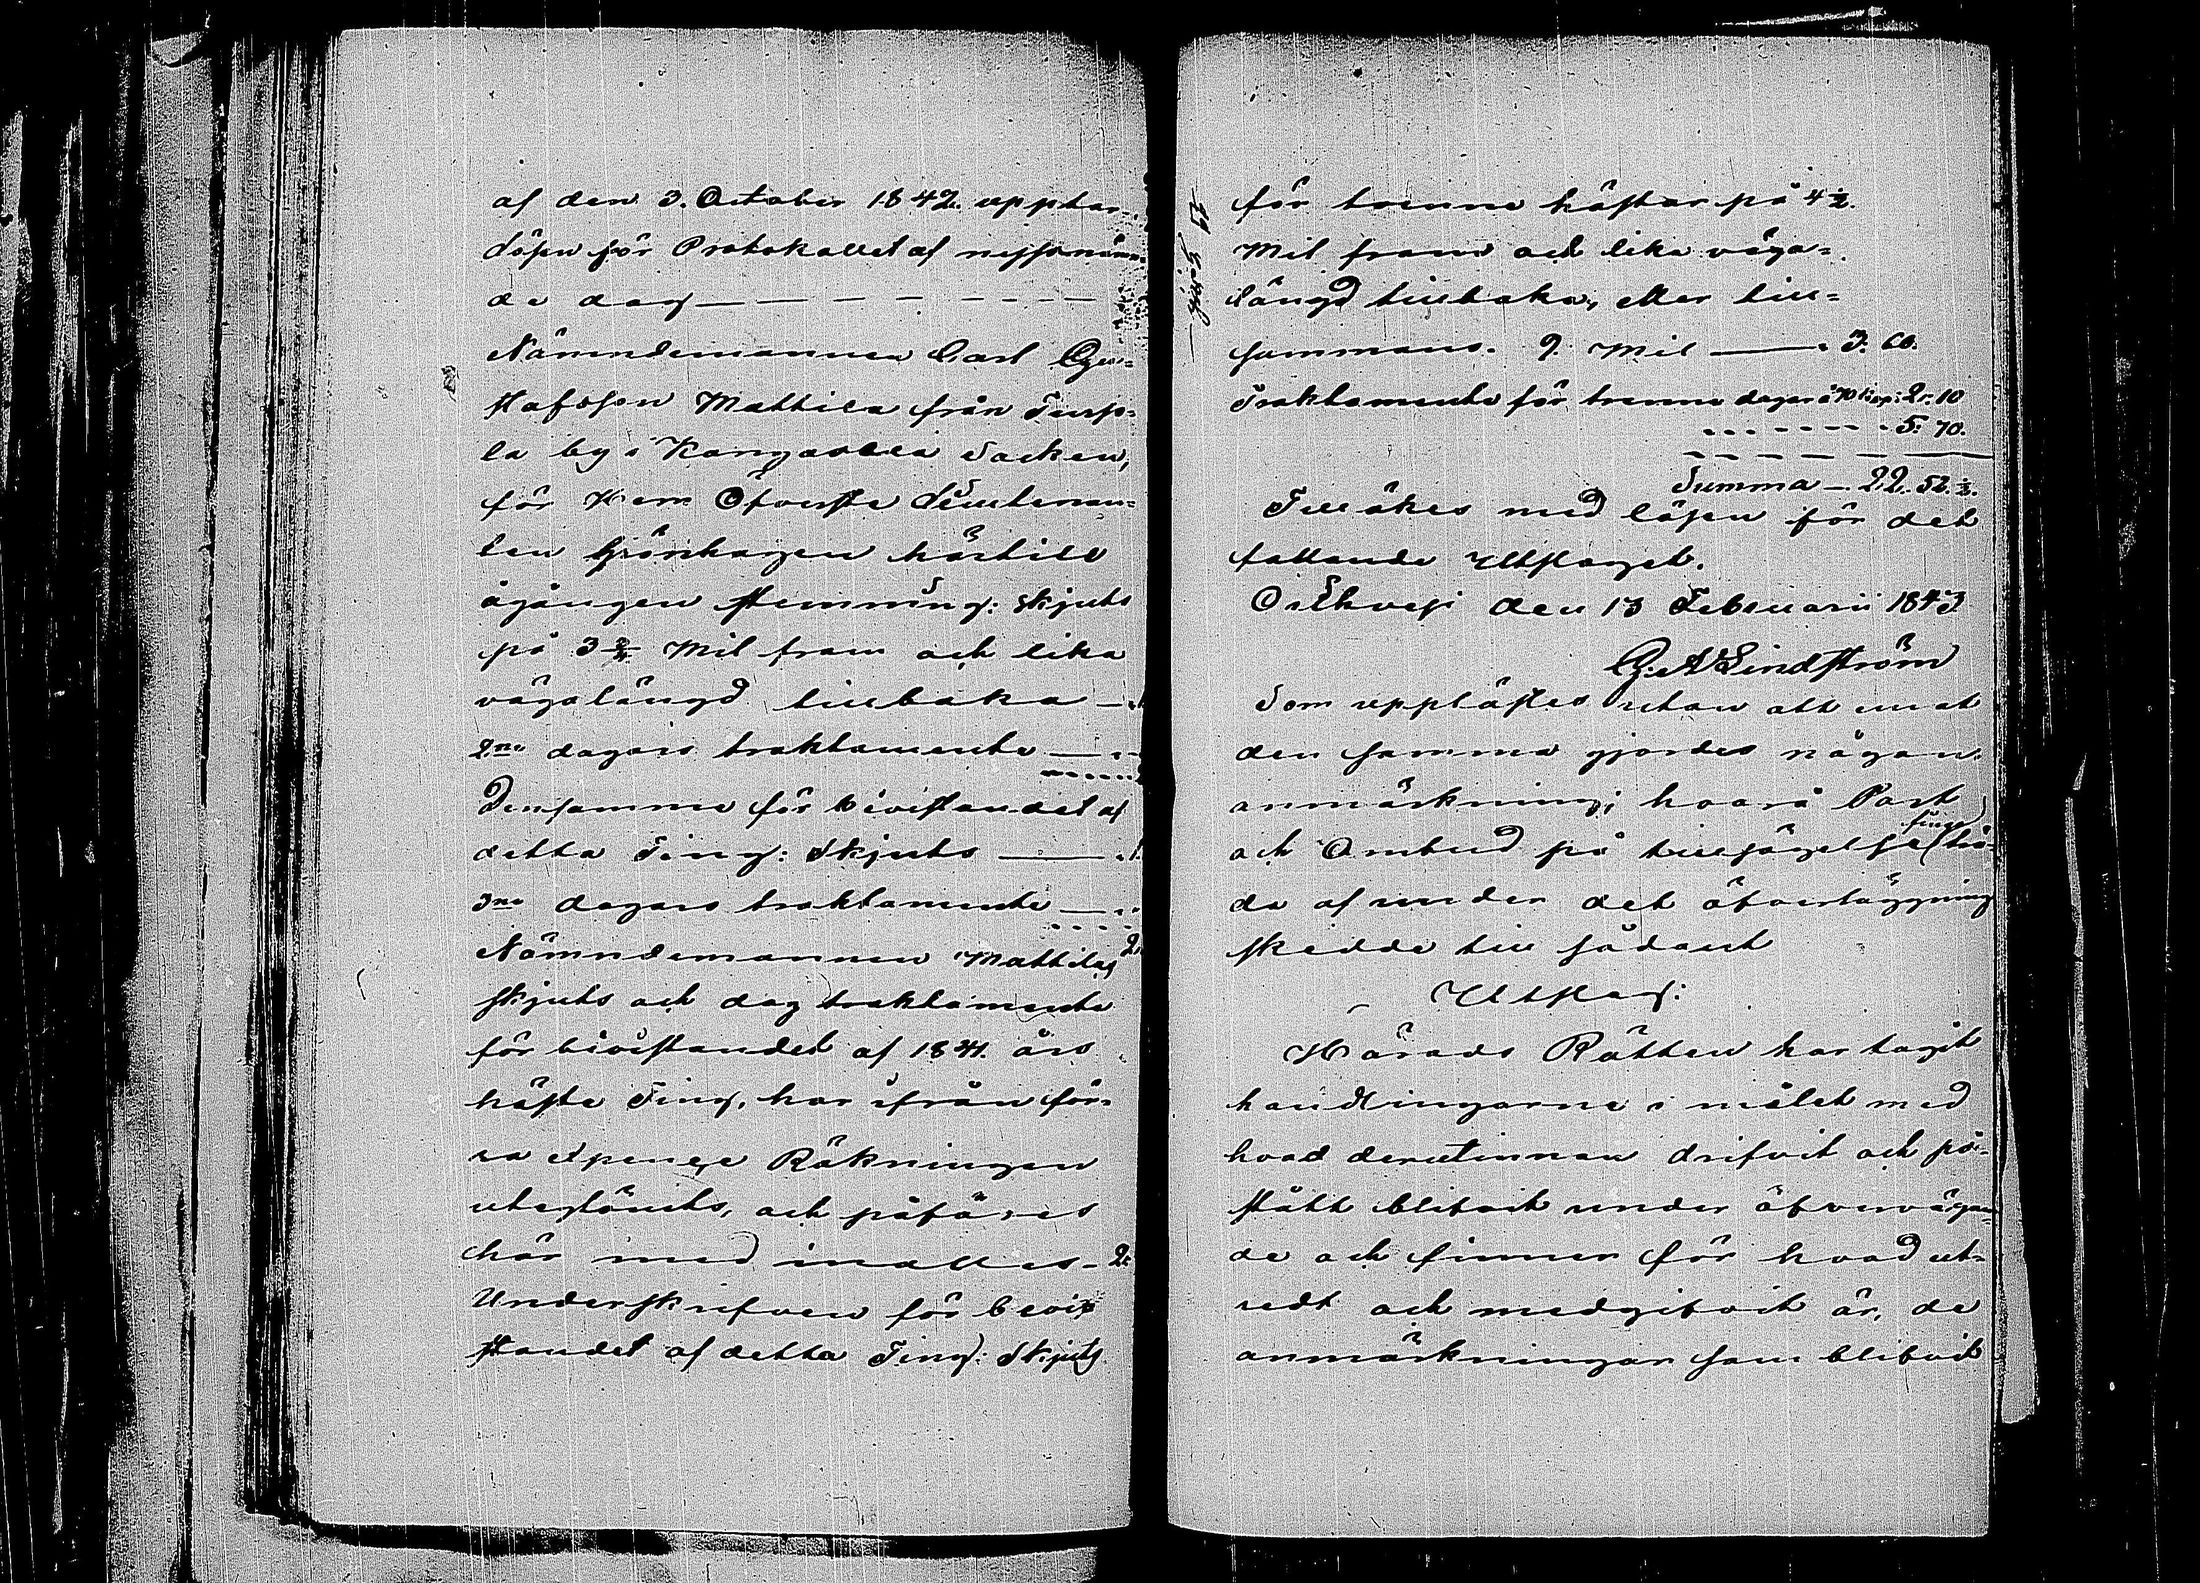 af den 3. October 1842. upptar-
lösen för Protokollet af nyssnämn
de dag — — — — — — — —
Nämndemannen Carl Gu-
stafsson Mattila från Turso-
la by i Kangasala Socken,
för Herr Öfverste Lieutenan-
ten Grönhagen härtill
ågången stemning: skjuts
på 3 3/4 Mil fram och lika
vägalängd tillbaka —
2ne dagars traktamente —
Densamme för bivistandet af
detta Ting: Skjuts —
3ne dagars traktamente —
Nämndemannen Mattilas
skjuts och dag traktamente
för bivistandet af 1841. års
höste Ting, har ifrån för-
ra expence Räkningen
uteglömts, och påföres
här med inalles - 2.
Underskrefven för bevi-
standet af detta Ting: Skjuts
för trenne hästar på 4 1/2.
Mil fram och lika väga-
längd tillbaka, eller till-
sammans. 9. Mil — 3. 60.
Traktamente för trenne dagar à 70 kop: 2r. 10
- - - - - - - 5. 70.
Summa — 22. 52. 1/2.
Tillökes med lösen för det
fallande Utslaget.
Orihvesi den 13 Februarii 1843
G. A Lindström
Som upplästes utan att emot
den samma gjordes någon
anmärkning; hvarå Part
och Ombud på tillsägelse fingo trä-
da af under det öfverläggning
skedde till sådant
Utslag:
Härads Rätten har tagit
handlingarne i målet med
hvad derutinnan drifvit och på-
stått blifvit under öfvervägan-
de och finner för hvad ut-
redt och medgifvit är, de
anmärkningar som blifvit